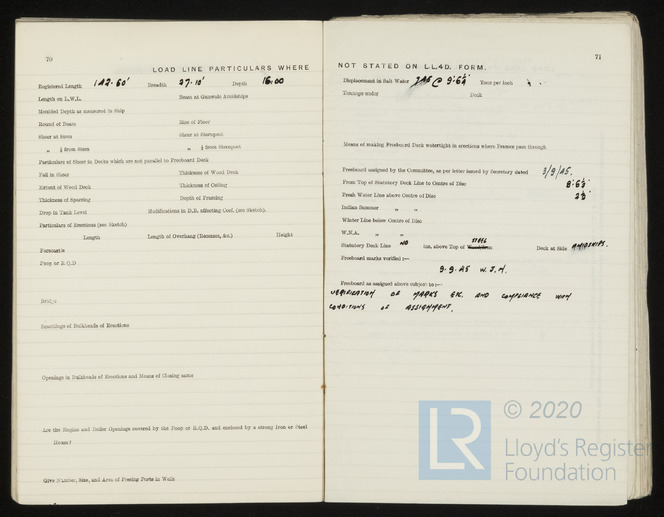 70
LOAD LINE PARTICULARS WHERE
Registered Length 142.60' Breadth 27.10' Depth 16.00
Length on L.W.L. Beam at Gunwale Amidships
Moulded Depth as measured in Ship
Round of Beam Rise of Floor
Sheer at Stem Sheer at Sternpost
" ⅛ from Stem " ⅛ from Sternpost
Particulars of Sheer in Decks which are not parallel to Freeboard Deck
Fall in Sheer Thickness of Wood Deck
Extent of Wood Deck Thickness of Ceiling
Thickness of Sparring Depth of Framing
Drop in Tank Level Modifications in D.B. affecting Coef. (see Sketch).
Particulars of Erections (see Sketch)
Length Length of Overhang (Recesses, &c.) Height
Forecastle
Poop or R.Q.D
Bridge
Scantlings of Bulkheads of Erections
Openings in Bulkheads of Erections and Means of Closing same
Are the Engine and Boiler Openings covered by the Poop or R.Q.D. and enclosed by a strong Iron or Steel
House?
Give Number, Size, and Area of Freeing Ports in Wells
71
NOT STATED ON LL.4D. FORM.
Displacement in Salt Water @ Tons per inch
Tonnage under Deck
Means of making Freeboard Deck watertight in erections where Frames pass through
Freeboard assigned by the Committee, as per letter issued by Secretary dated 3/9/45.
From Top of Statutory Deck Line to Centre of Disc
Fresh Water Line above Centre of Disc
Indian Summer " "
Winter Line below Centre of Disc
W.N.A. " "
Statutory Deck Line NO ins. above Top of STEEL Deck at Side AMIDSHIPS.
Freeboard marks verified :—
9.9.45 W.J.M.
Freeboard as assigned above subject to :—
VERIFICATION OF MARKS ETC. AND COMPLIANCE WITH
CONDITIONS OF ASSIGNMENT.
LR
© 2020
Lloyd's Register
Foundation